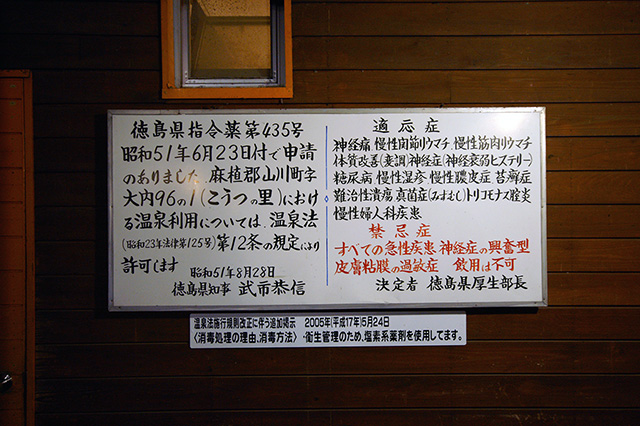 徳島県指令薬第435号
昭和51年6月23日付で申請
のありました.麻植郡山川町字
大内96の1(こうつの里)におけ
る温泉利用については.温泉法
(昭和23年法律第125号)第12条の規定により
許可します
昭和51年8月28日
徳島県知事 武市恭信
適応症
神経痛.慢性関節リウマチ.慢性筋肉リウマチ
体質改善(変調)神経症(神経衰弱ヒステリー)
糖尿病 慢性湿疹 慢性膿皮症 苔癬症
難治性潰瘍 真菌症(みずむし)トリコモナス腟炎
慢性婦人科疾患
禁忌症
すべての急性疾患 神経症の興奮型
皮膚粘膜の過敏症 飲用は不可
決定者 徳島県厚生部長
温泉法施行規則改正に伴う追加掲示 2005年(平成17年)5月24日
〈消毒処理の理由、消毒方法〉・衛生管理のため、塩素系薬剤を使用してます。